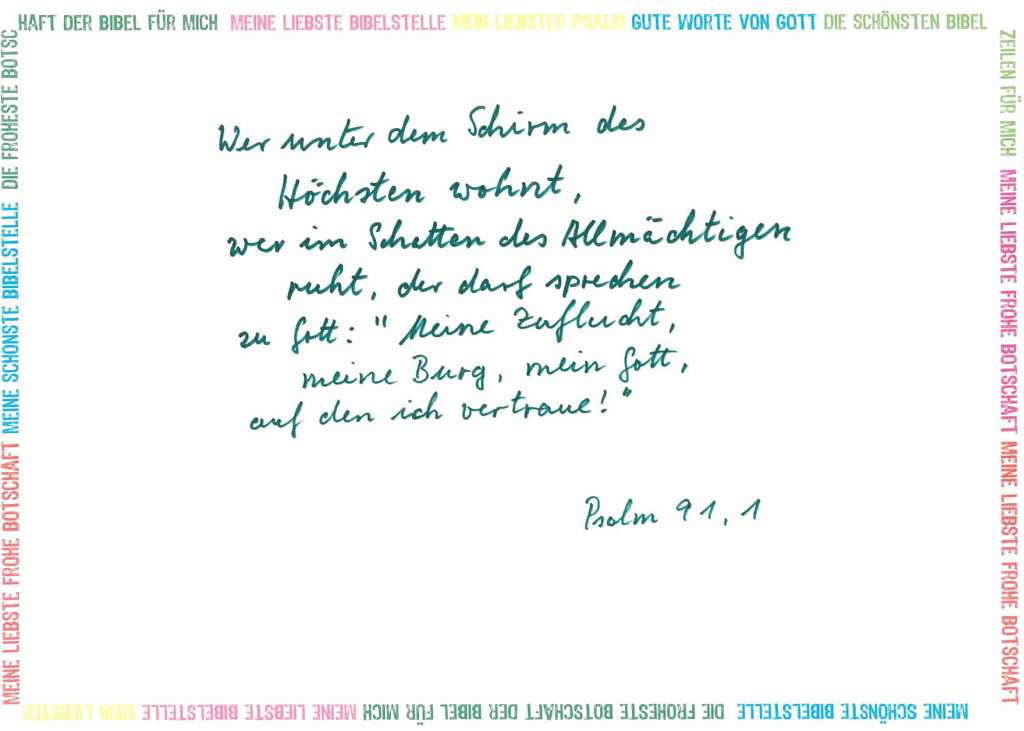 HAFT DER BIBEL FÜR MICH MEINE LIEBSTE BIBELSTELLE MEIN LIEBSTER PSALM GUTE WORTE VON GOTT DIE SCHÖNSTEN BIBEL
ZEILEN FÜR MICH MEINE LIEBSTE FROHE BOTSCHAFT MEINE LIEBSTE FROHE BOTSCHAFT
Wer unter dem Schirm des
Höchsten wohnt,
wer im Schatten des Allmächtigen
ruht, der darf sprechen
zu Gott: "Meine Zuflucht,
meine Burg, mein Gott,
auf den ich vertraue!"
Psalm 91,1
MEINE SCHÖNSTE BIBELSTELLE DIE FROHESTE BOTSCHAFT DER BIBEL FÜR MICH MEINE LIEBSTE BIBELSTELLE MEIN LIEBSTER
MEINE LIEBSTE FROHE BOTSCHAFT MEINE SCHÖNSTE BIBELSTELLE DIE FROHESTE BOTSC